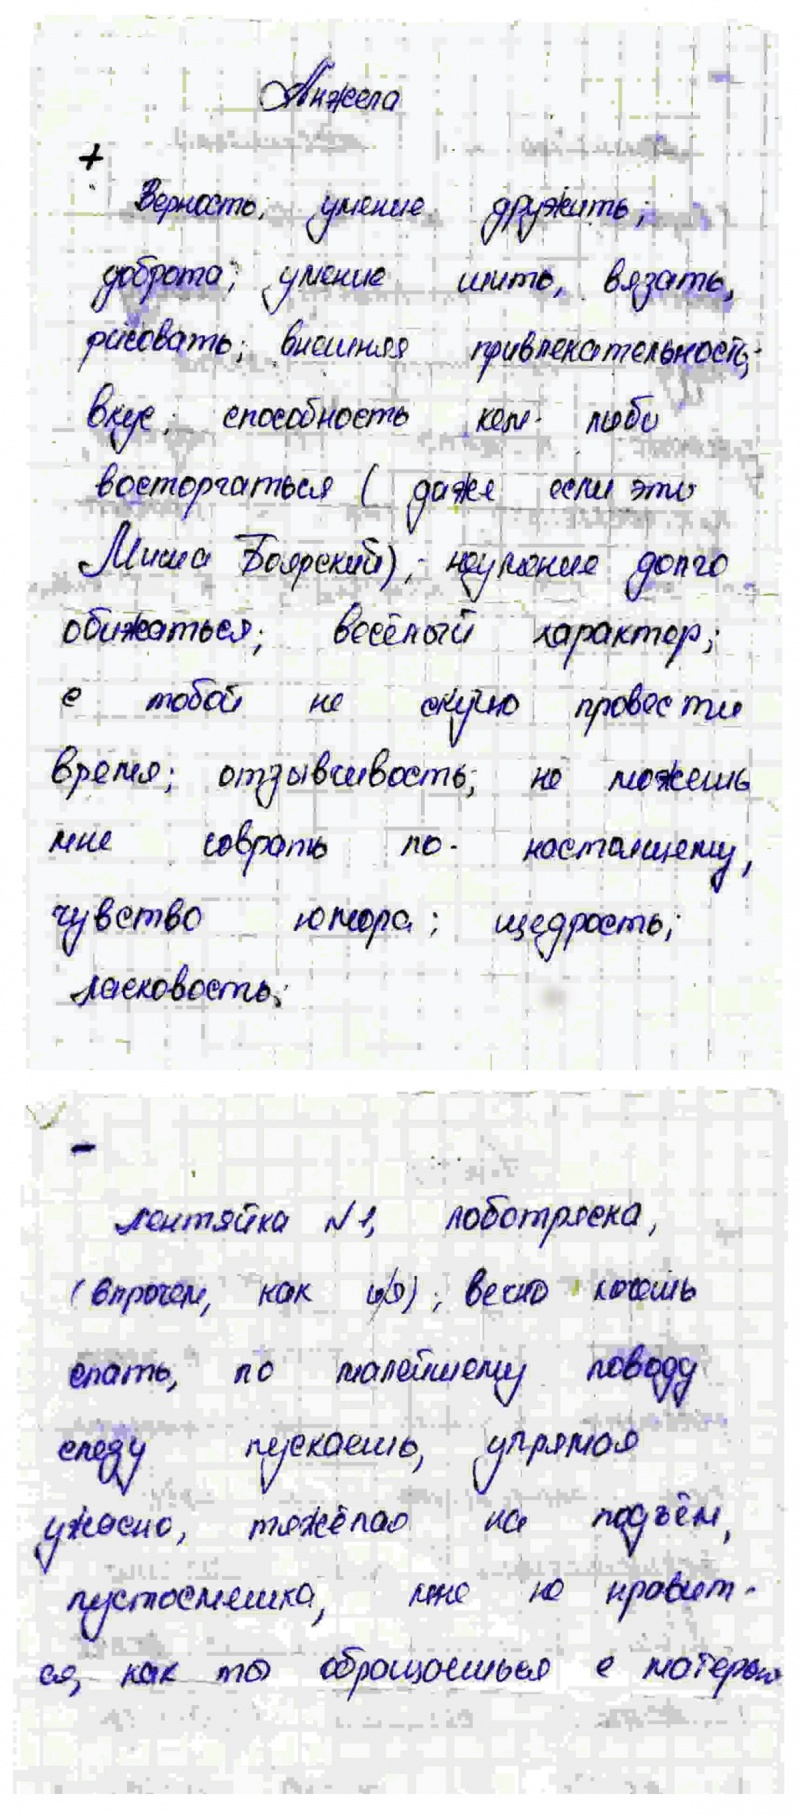 Анжела
+
Верность, умение дружить;
доброта; умение шить, вязать,
рисовать; внешняя привлекательность;
вкус; способность кем-либо
восторгаться ( даже если это
Миша Боярский); неумение долго
обижаться; весёлый характер;
с тобой не скучно провести
время; отзывчивость; не можешь
мне соврать по-настоящему,
чувство юмора; щедрость;
ласковость;
-
лентяйка №1, лоботряска,
(впрочем, как и я); вечно хочешь
спать, по малейшему поводу
слезу пускаешь, упрямая
ужасно, тяжёлая на подъём,
пустосмешка, мне не нравит-
ся, как ты обращаешься с матерью